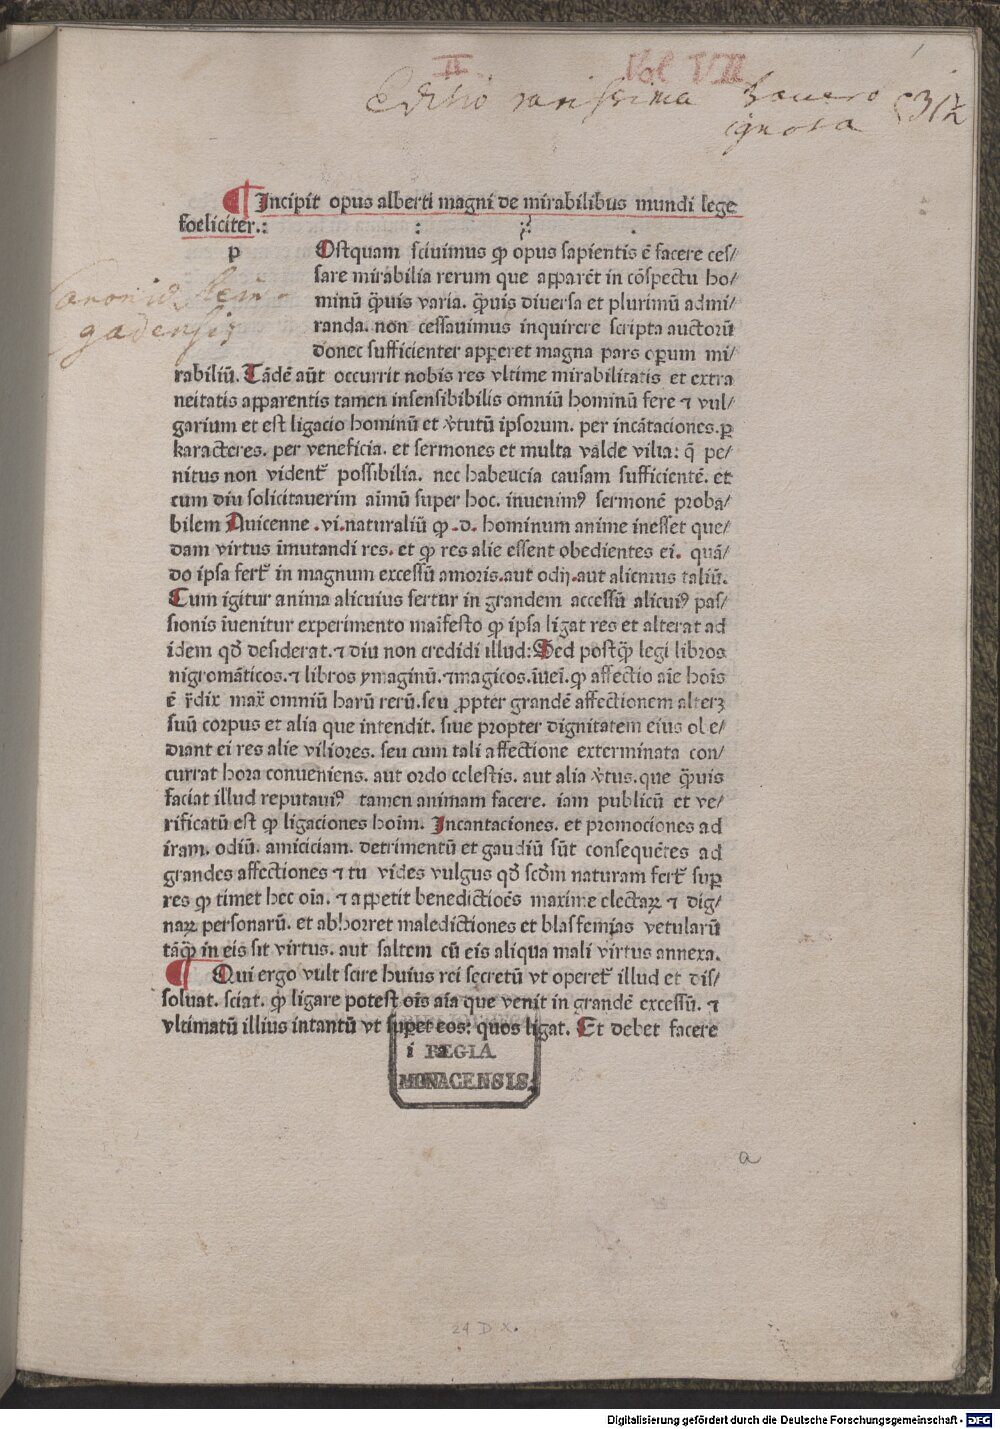 II Vol VII
Editio rarissima
ignota
¶ Incipit opus alberti magni de mirabilibus mundi lege
foeliciter.:
p OStquam sciuimus ꝙ opus sapientis ē facere ces/
sare mirabilia rerum que apparēt in cōspectu ho/
minū q̄uis varia. q̄uis diuersa et plurimū admi/
randa. non cessauimus inquirere scripta auctorū
donec sufficienter apꝑeret magna pars oꝑum mi/
rabiliū. Tādē aūt occurrit nobis res vltime mirabilitatis et extra
neitatis apparentis tamen insensibibilis omniū hominū fere ⁊ vul/
garium et est ligacio hominū et v̓tutū ipsorum. per incātaciones. ꝑ
karacteres. per veneficia. et sermones et multa valde vilia: q̄ pe/
nitus non vident᷑ possibilia. nec habeucia causam sufficientē. et
cum diu solicitauerim aīmū super hoc. inuenimꝰ sermonē proba/
bilem Auicenne .vi. naturaliū ꝙ .d. hominum anime inesset que/
dam virtus īmutandi res. et ꝙ res alie essent obedientes ei. quā/
do ipsa fert᷑ in magnum excessū amoris. aut odij. aut alicuius taliū.
Cum igitur anima alicuius fertur in grandem accessū alicuiꝰ pas/
sionis īuenitur experimento maīfesto ꝙ ipsa ligat res et alterat ad
idem qd̄ desiderat. ⁊ diu non credidi illud: Sed postq̄ꝫ legi libros
nigromāticos. ⁊ libros ymaginū. ⁊magicos. īueī. ꝙ affectio aīe hoīs
ē r̄dix max̄ omniū harū rerū. seu ꝓpter grandē affectionem alterꝫ
suū corpus et alia que intendit. siue propter dignitatem eius ol e/
diant ei res alie viliores. seu cum tali affectione exterminata con/
currat hora conueniens. aut ordo celestis. aut alia v̓tus. que q̄uis
faciat illud reputauiꝰ tamen animam facere. iam publicū et ve/
rificatū est ꝙ ligaciones hoīm. Incantaciones. et promociones ad
iram. odiū. amiciciam. detrimentū et gaudiū sūt consequētes ad
grandes affectiones ⁊ tu vides vulgus qd̄ scd̄m naturam fert᷑ suꝑ
res ꝙ timet hec oīa. ⁊ appetit benedictioēs maxime electaꝝ ⁊ dig/
naꝝ personarū. et abhorret maledictiones et blasfemias vetularū
tāq̄ꝫ in eis sit virtus. aut saltem cū eis aliqua mali virtus annexa.
¶ Qui ergo vult scire huius rei secretū vt operet᷑ illud et dis/
soluat. sciat. ꝙ ligare potest oīs aīa que venit in grandē excessū. ⁊
vltimatū illius intantū vt superet eos: quos ligat. Et debet facere
i a
REGIA
MONACENSIS.
a
24 D X.
Digitalisierung gefördert durch die Deutsche Forschungsgemeinschaft - DFG